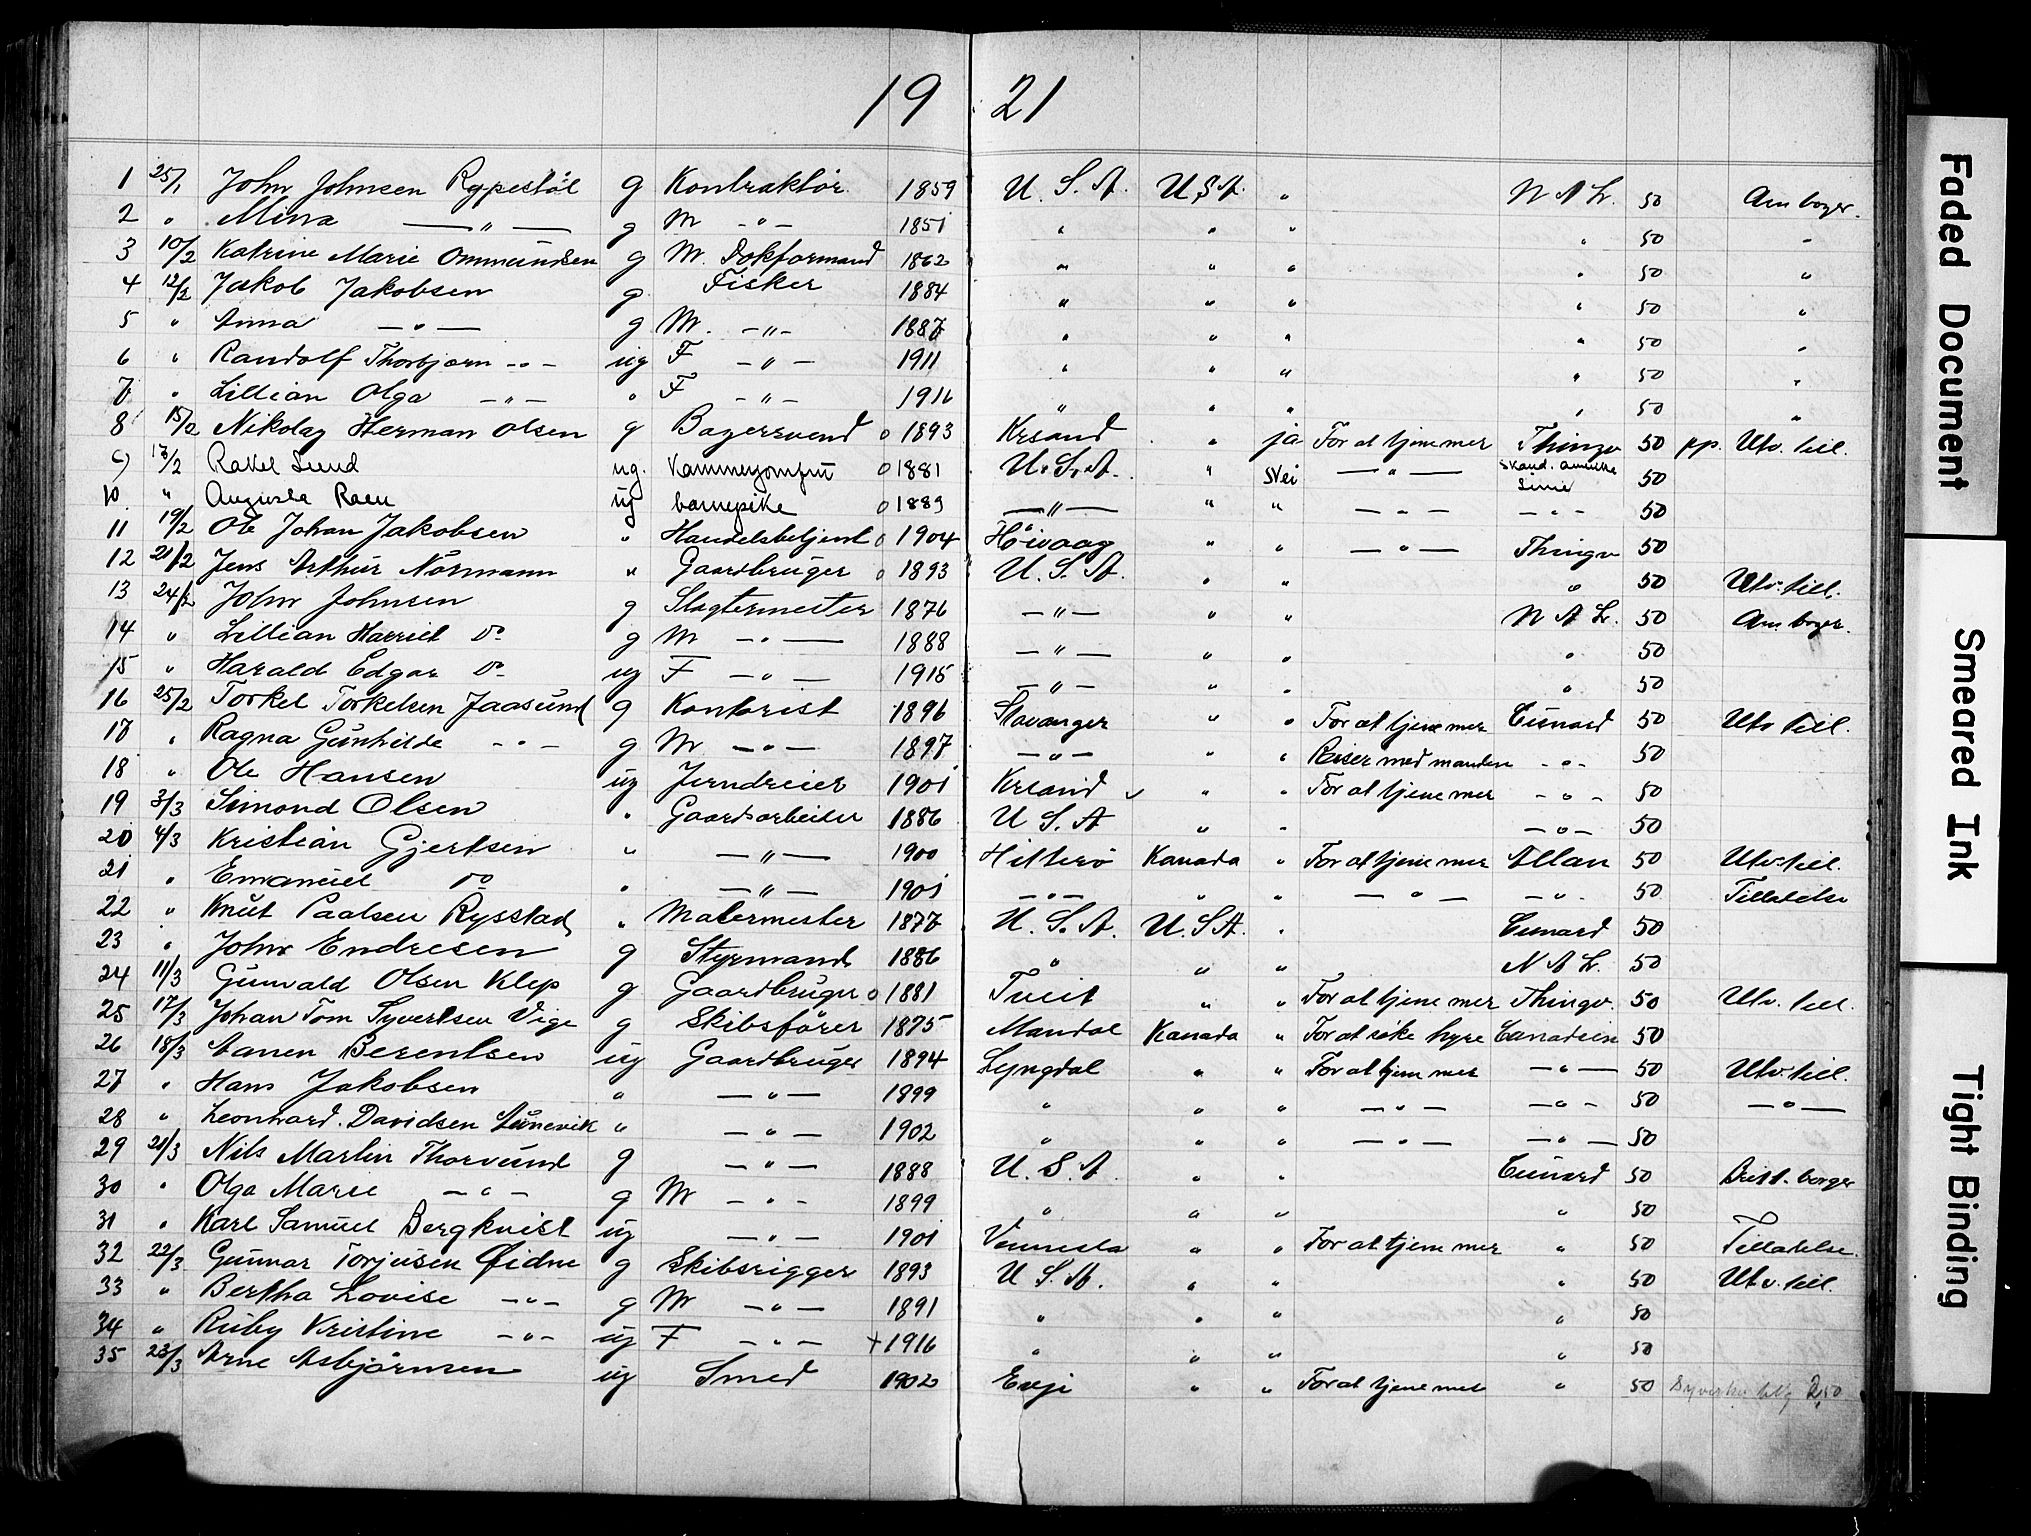 19 21
1 25/1 John Johnsen Rypestöl g Kontraktör 1859 U. S. A. U.S.A. " N A L. 50 Am borger.
2 " Mina —"— g M -"- 1851 " " " " 50 "
3 10/2 Katrine Marie Ommundsen g M. Dokformand 1862 " " " " 50 "
4 12/2 Jakob Jakobsen g. Fisker 1884 " " " " 50 "
5 " Anna —"— g M. -"- 1887 " " " " 50 "
6 " Randolf Thorbjørn -"- ug F -"- 1911 " " " " 50 "
7 " Lillian Olga -"- " F -"- 1916 " " " " 50 "
8 15/2 Nikolay Herman Olsen g Bagersvend o 1893 Krsand " ja For at tjene mer Thingv 50 pp. Utv. till.
9 17/2 Rakel Lund ug. Kammerjomfru o 1881 U. S. A. " nei —"— Skand. amerika Linie 50
10. " Augusta Roen ug barnepike o 1889 —"— " " -"- -"- 50
11 19/2 Ole Johan Jakobsen " Handelsbetjent o 1904 Höivaag " " —"— Thingv 50
12 21/2 Jens Arthur Normann " Gaardbruger o 1893 U. S. A. " " " 50 Utv. till.
13 24/2 John Johnsen g Slagtermester 1876 —"— " " N A L. 50 Am borger.
14 " Lillian Harriet Do g M -"- 1888 —"— " " " 50
15 " Harald Edgar Do ug F -"- 1915 —"— " " " 50
16 25/2 Torkel Torkelsen Jaasund g Kontorist 1896 Stavanger " " For at tjene mer Cunard 50 Utv till.
17 " Ragna Gunhilde -"- g M -"- 1897 —"— " " Reiser med manden -"- 50
18 " Ole Hansen ug Jerndreier 1901 Krsand " " For at tjene mer -"- 50
19 3/3 Simond Olsen " Gaardsarbeider 1886 U S. A " " -"- 50
20 4/3 Kristian Gjertsen " —"— 1900 Hitterö Kanada " For at tjene mer Allan 50 Utv. till.
21 " Emanuel Do " —"— 1901 -"- " " -"- -"- 50 Tilladelse
22 " Knut Paalsen Rysstad " Malermester 1877 U. S. A. U. S A. " Cunard 50
23 " John Endresen g Styrmand 1886 " " " N A L. 50
24 11/3 Gunvald Olsen Klep g Gaardbruger o 1881 Tveit " " For at tjene mer Thingv. 50 Utv. till.
25 17/3 Johan Tom Syvertsen Vige g Skibsförer 1875 Mandal Kanada " For at söke hyre Canadien 50
26 18/3 Aanen Berentsen ug Gaardbruger 1894 Lyngdal " " For at tjene mer —"— 50 Utv. till.
27 " Hans Jakobsen " —"— 1899 " " " —"— —"— 50 —"—
28 " Leonhard. Davidsen " —"— 1902 " " " —"— —"— 50
29 21/3 Nils Martin Thorvund g —"— 1888 U. S A. " " Cunard 50 Brit. borger
30 " Olga Marie -"- g M -"- 1899 " " " " 50
31 " Karl Samuel Bergkvist ug -"- 1901 Vennesla " " For at tjene mer " 50 Tilladelse.
32 22/3 Gunnar Torjusen Øidne g Skibsrigger 1893 U S. A. " " " 50 Utv. till.
33 " Bertha Lovise -"- g M -"- 1891 " " " " 50
34 " Ruby Kristine -"- ug F -"- + 1916 " " " " 50
35 23/3 Arne Asbjörnsen ug Smed 1902 Evje " " For at tjene mer " 50 2,50
Faded Document
Smeared Ink
Tight Binding